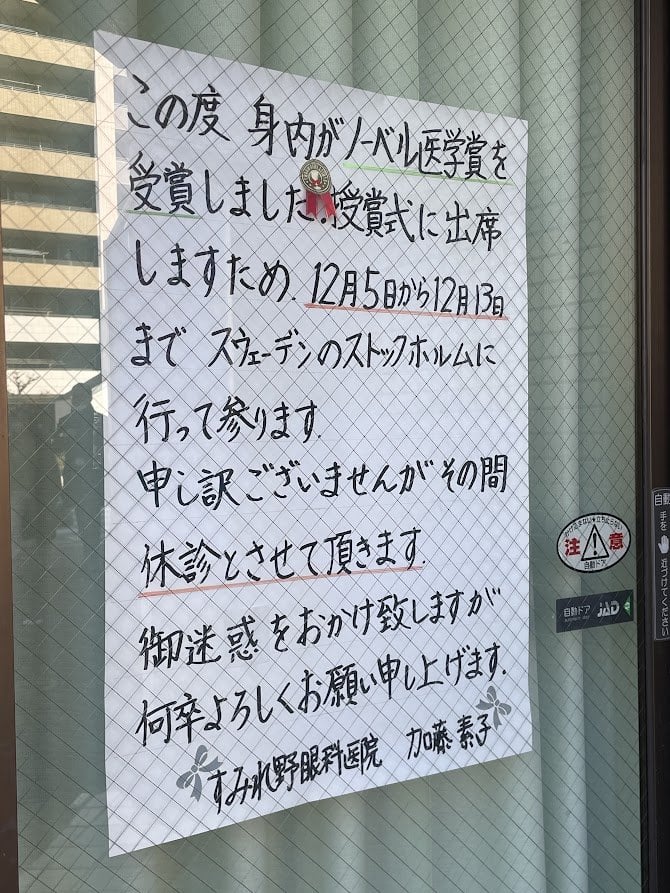 この度 身内がノーベル医学賞を
受賞しました.授賞式に出席
しますため.12月5日から12月13日
まで スウェーデンのストックホルムに
行って参ります.
申し訳ございませんがその間
休診とさせて頂きます.
御迷惑をおかけ致しますが
何卒よろしくお願い申し上げます.
すみれ野眼科医院 加藤 素子
注意
自動ドア
自動ドア JAD
自動
手を
近づけてください